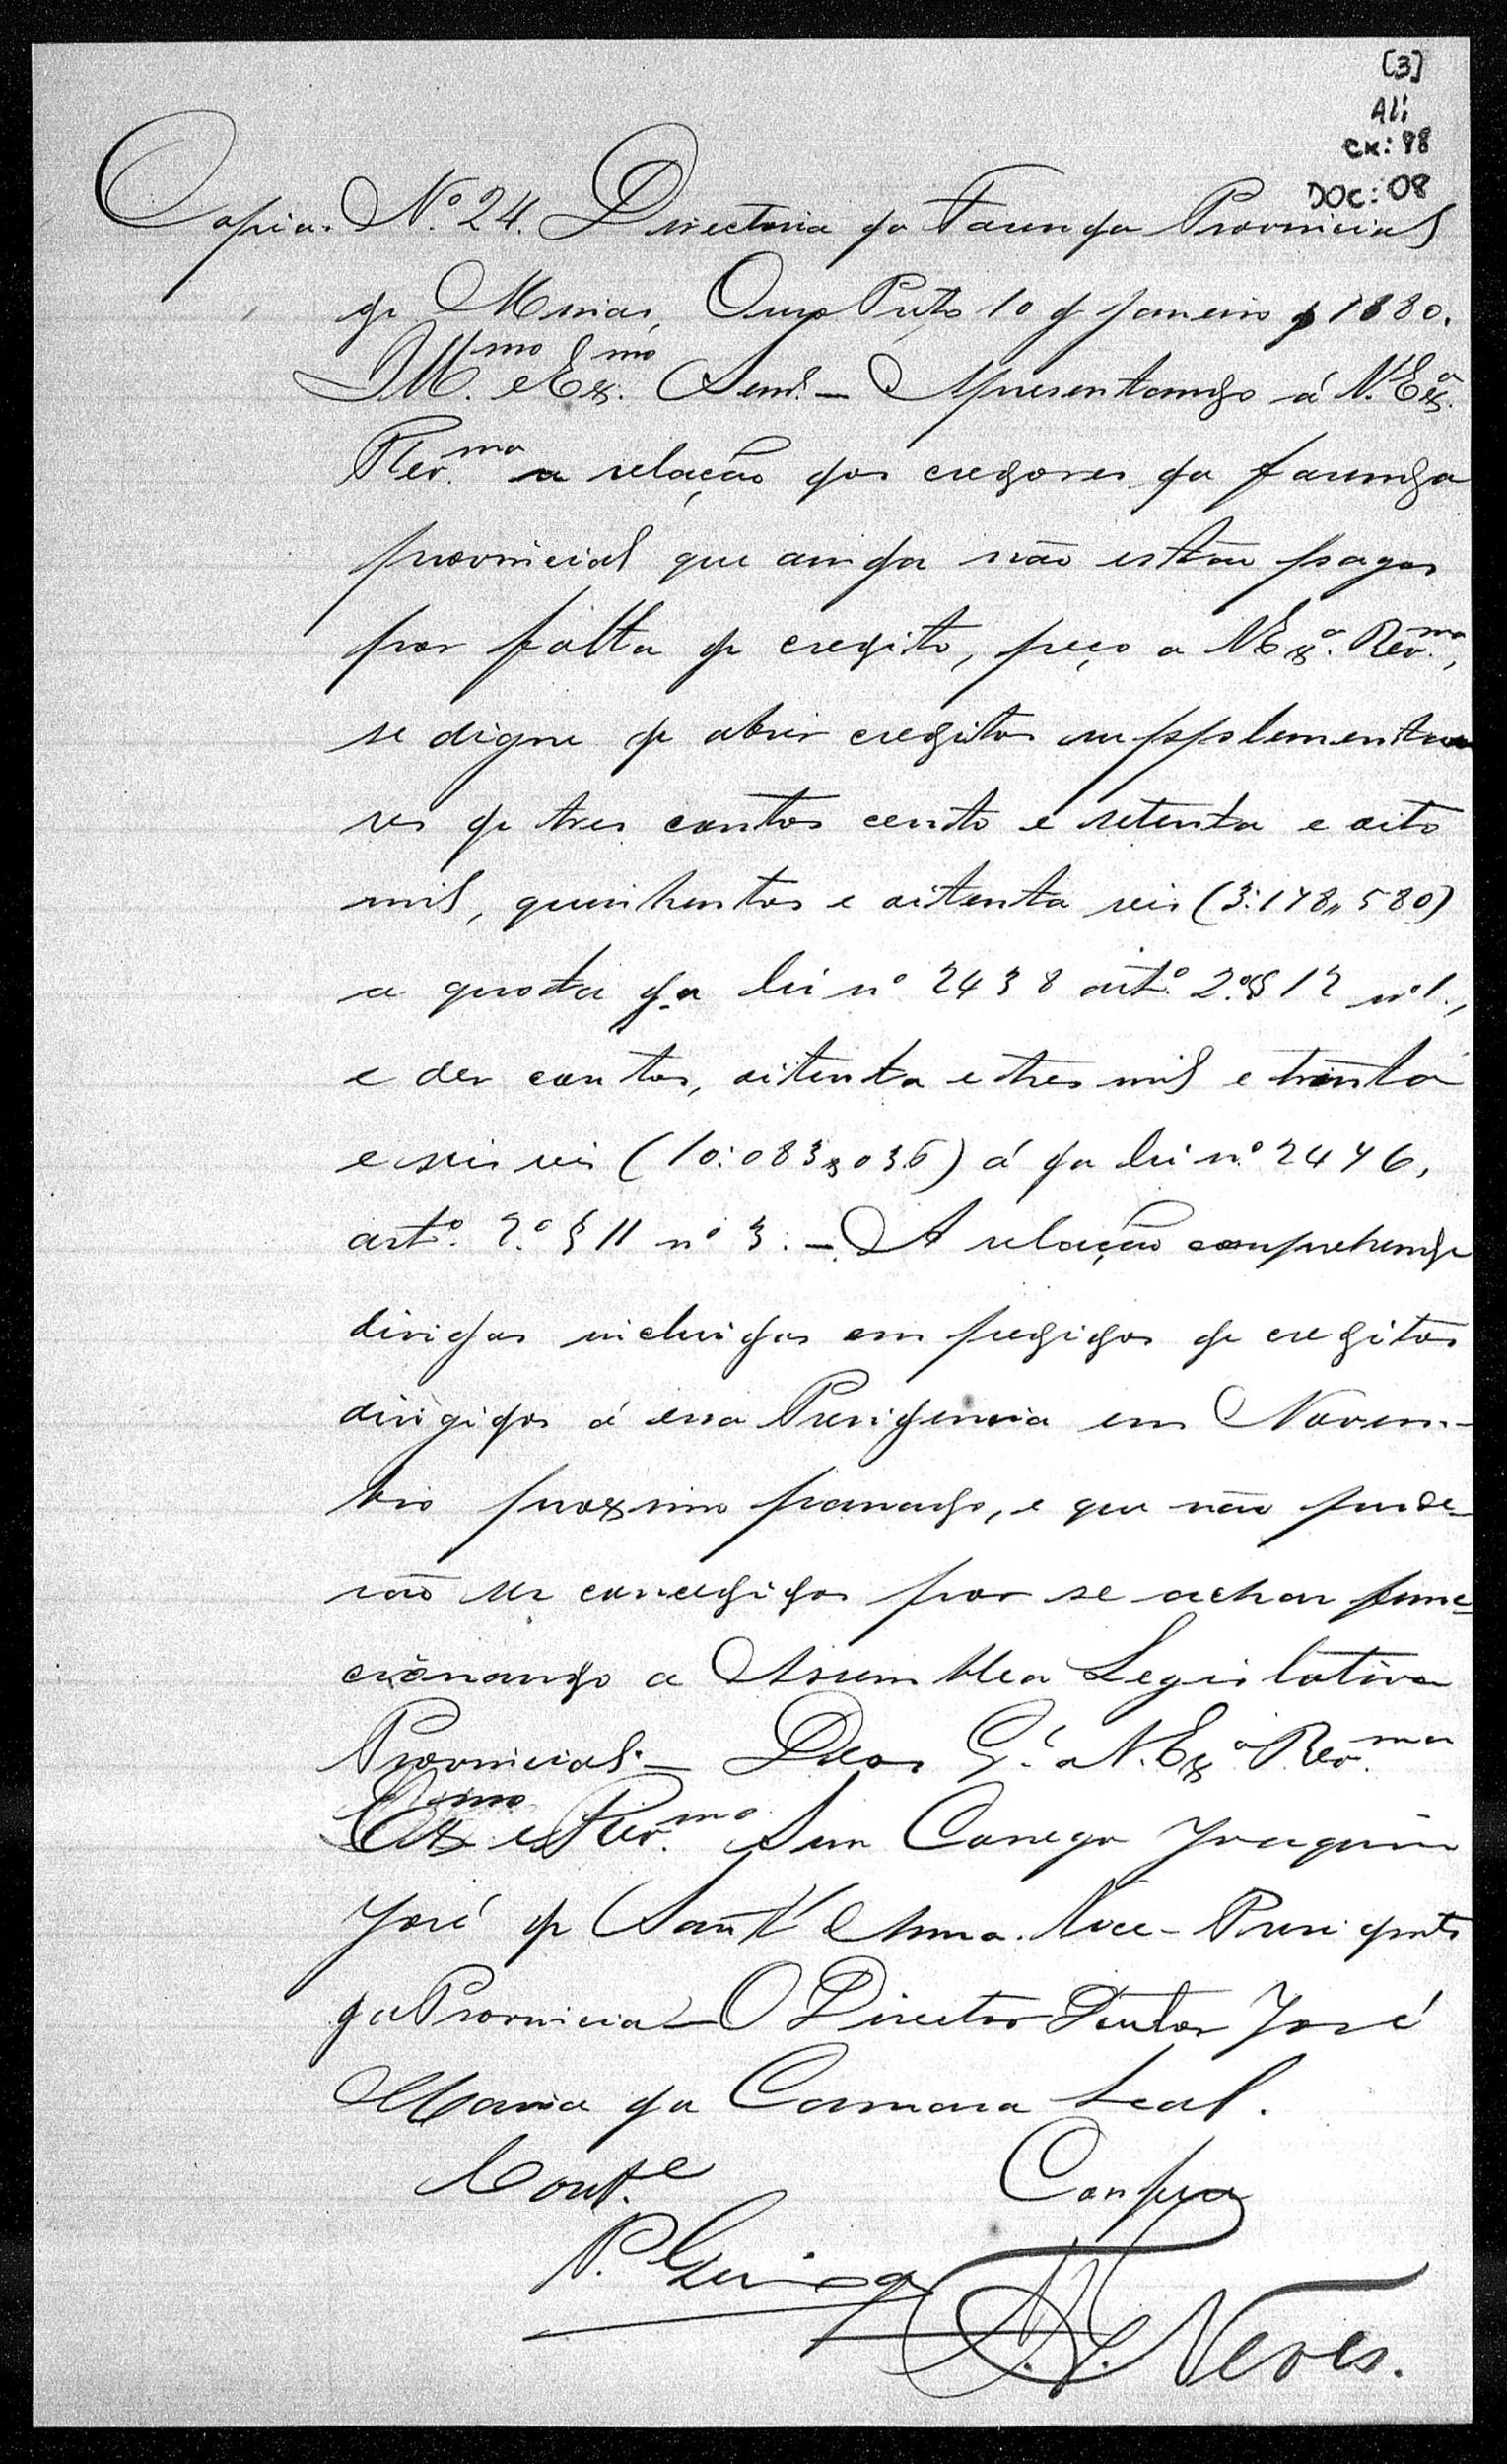 [3]
ALi
CX: 98
DOC: 08
Copia. N.º 24. Directoria da Fazenda Provincial
de Minas, Ouro Preto 10 de Janeiro de 1880.
Ill.mo e Ex.mo Senr. — Apresentando á V. Ex.ª
Rev.ma a relação dos credores da fazenda
provincial que ainda não estão pagos
por falta de credito, peço a V Ex.ª Rev.ma,
se digne de abrir creditos supplementa
res de tres contos cento e setenta e oito
mil, quinhentos e oitenta reis (3:178,,580)
a quota da lei nº 2438 art.º 2.º § 12 nº 1.,
e dez contos, oitenta e tres mil e trinta
e seis reis (10:083$036) á da lei n.º 2476,
art.º 2.º § 11 nº 3. — A relação comprehende
dividas incluidas em pedidos de creditos
dirigidos á essa Presidencia em Novem-
bro proximo passado, e que não pude-
rão ser concedidos por se achar func-
cionando a Assemblea Legislativa
Provincial. — Deos G.e a V. Ex.ª Rev.ma
Ex.mo e Rev.mo Senr Conego Joaquim
José de Sant'Anna. Vice-Presidente
da Provincia — O Director Doutor José
Maria da Camara Leal.
Conf.e
Confere
P. Guima
Neves.